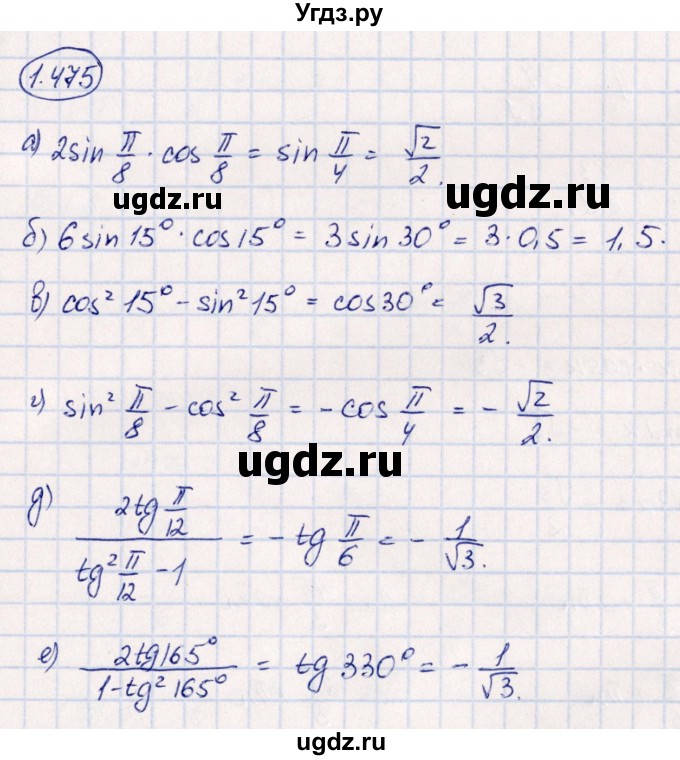 Угдз.ру
1.475
а) 2sin π/8 · cos π/8 = sin π/4 = √2/2.
ugdz.ru
ugdz.ru
б) 6sin15° · cos15° = 3sin30° = 3·0,5 = 1,5.
в) cos²15° - sin²15° = cos30° = √3/2.
г) sin² π/8 - cos² π/8 = -cos π/4 = - √2/2.
ugdz.ru
д) 2tg π/12 / (tg² π/12 - 1) = - tg π/6 = - 1/√3.
е) 2tg165° / (1-tg²165°) = tg330° = - 1/√3.
ugdz.ru
ugdz.ru